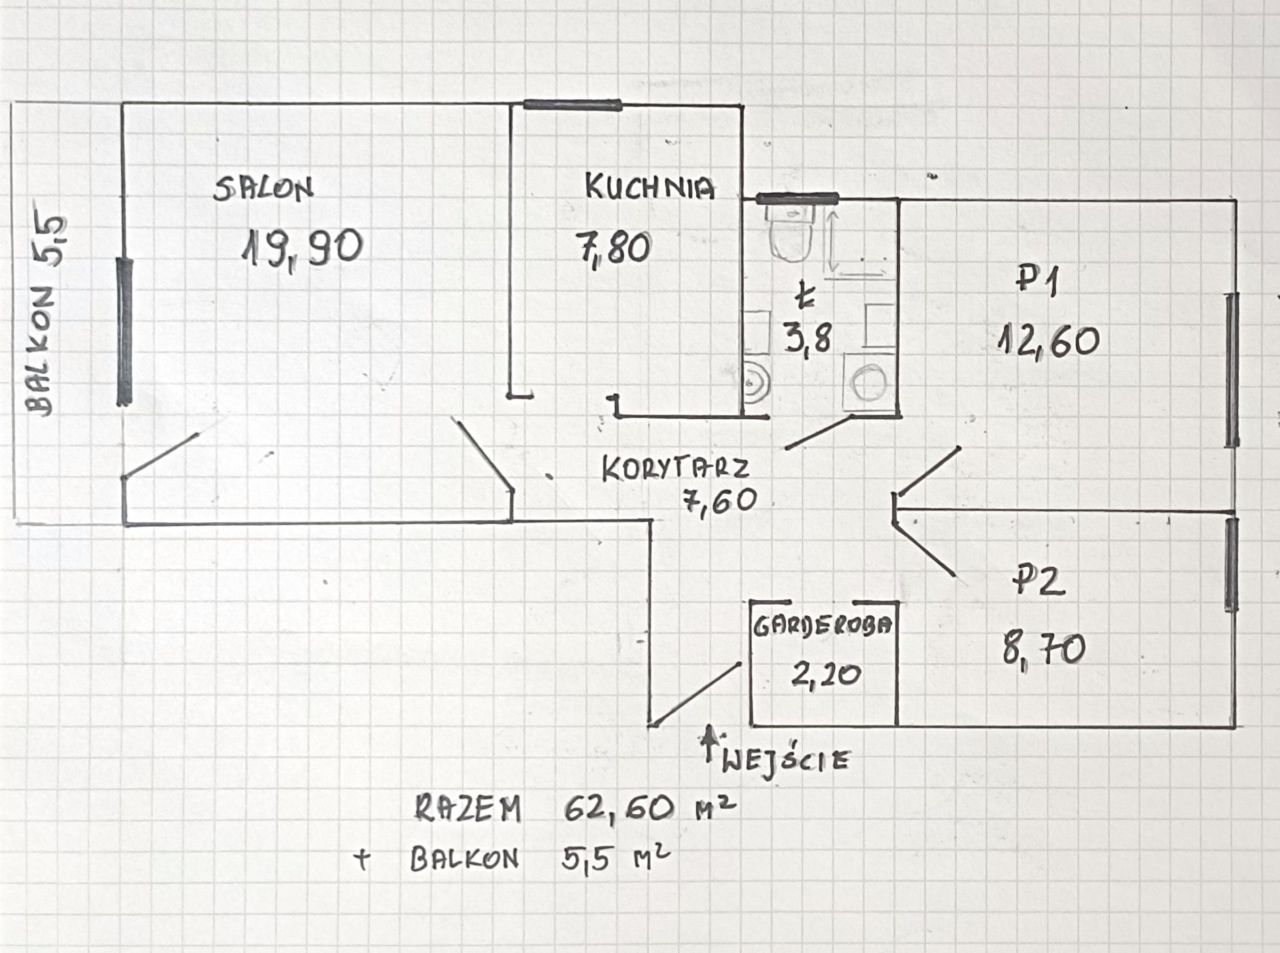 BALKON 5,5
SALON
19,90
KUCHNIA
7,80
Ł
3,8
P1
12,60
KORYTARZ
7,60
P2
8,70
GARDEROBA
2,20
WEJŚCIE
RAZEM 62,60 m²
+ BALKON 5,5 m²